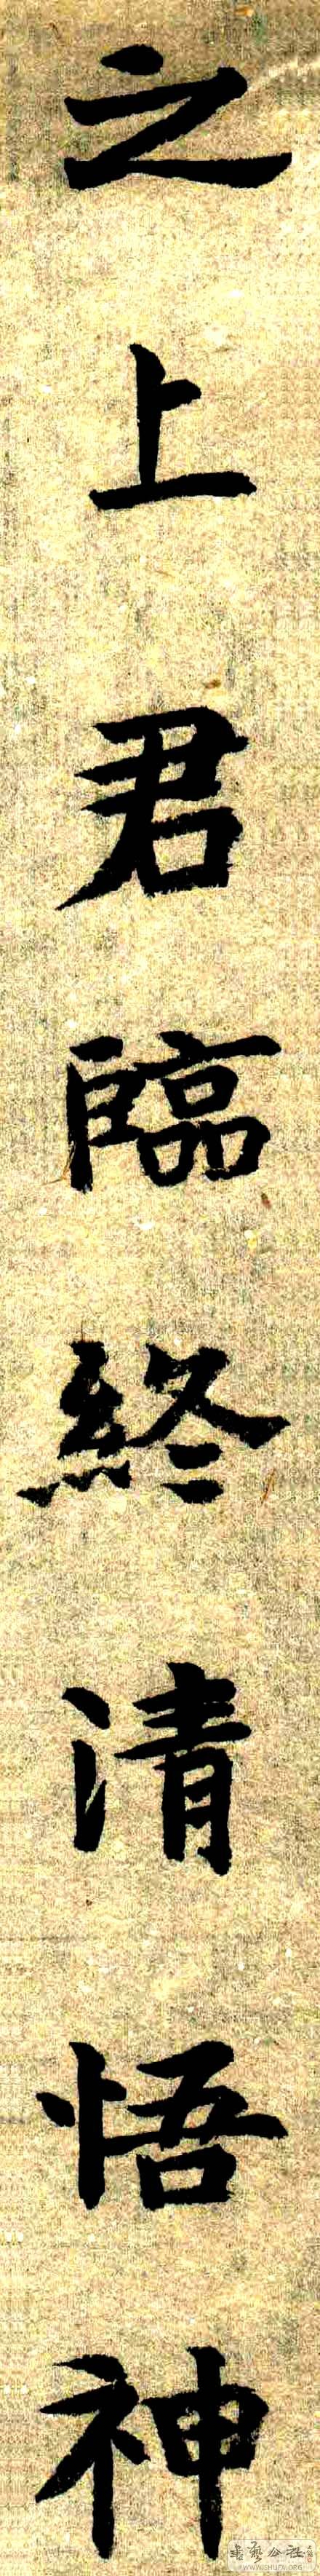 之上君臨終清悟神
書藝公社
WWW.SHUFA.ORG